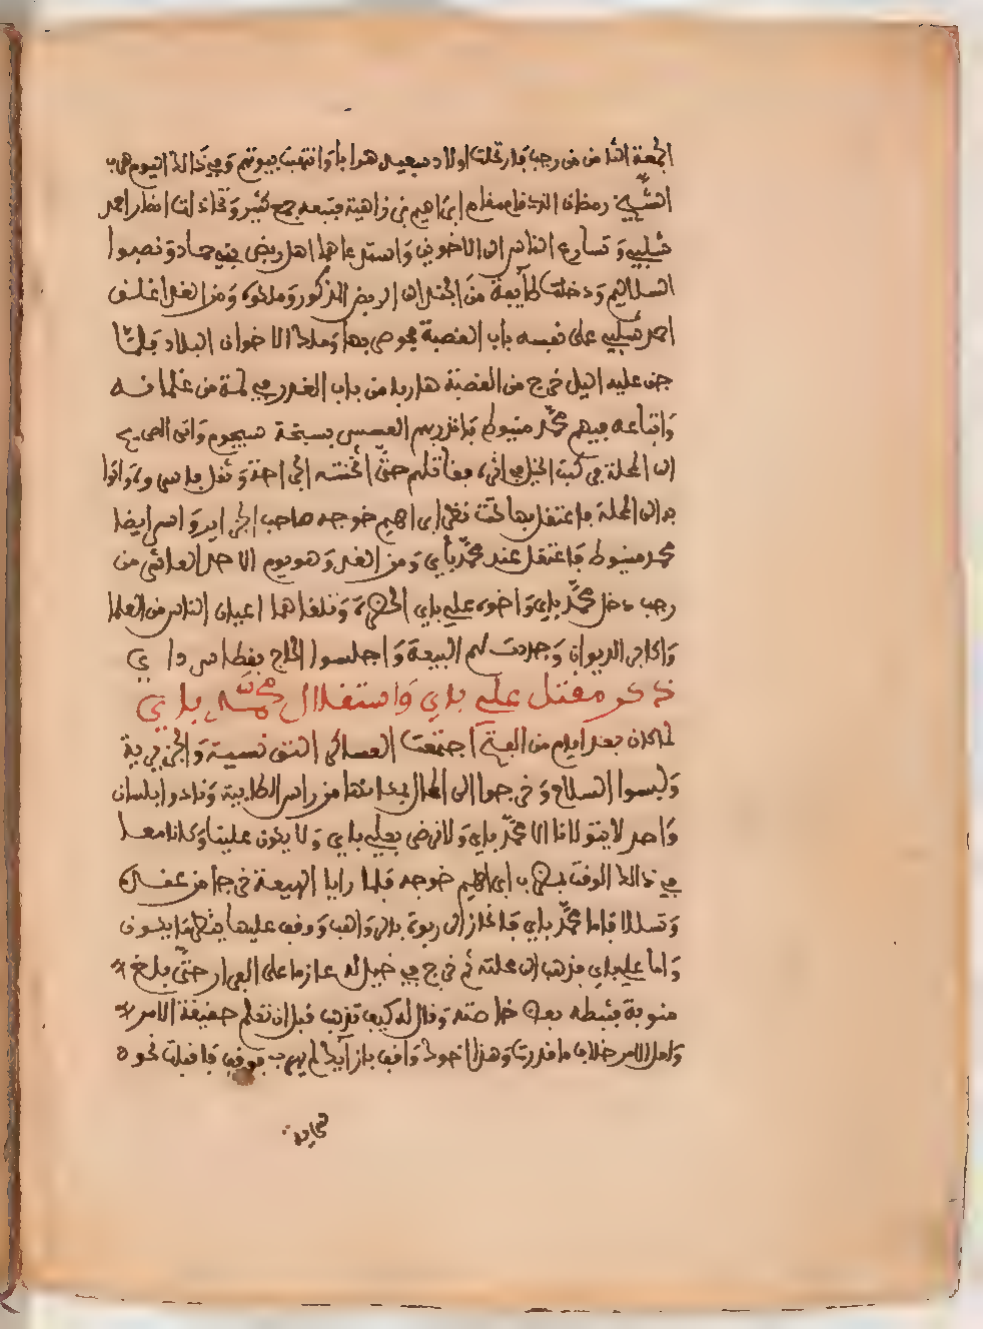 الجمعة الثامن من رجب فارتحلت اولاد سعيد هرابا وانتهبت بيوتهم وفي ذالك اليوم هرب
الشيخ رمضان الذي قام مقام ابراهيم بن زاهية فتبعه جمع كثير وتخاذلت انصار احمد
شلبي وتسارع الناس الى الاخوين واستدعاهما اهل ربض بني حمادو نصبوا
السلاليم ودخلت طايفة من الجند الى الربض المذكور وملكوه ومن الغد اغلق
احمد شلبي على نفسه باب القصبة فحوصر بها وملك الاخوان البلاد فلما
جن عليه اليل خرج من القصبة هاربا من باب الغدر في لمة من غلمانه
واتباعه فيهم محمد منيوط فانذر بهم العسس بسبخة سيجوم واتى الصريخ
الى المحلة فركبت الخيل في اثره فقاتلهم حتى اثخنته الجراحة وثقل فاسروه واتوا
به الى المحلة فاعتقل بها تحت نظر ابراهيم خوجه صاحب الجزاير واسر ايضا
محمد منيوط فاعتقل عند محمد باي ومن الغد وهو يوم الاحد العاشر من
رجب دخل محمد باي واخوه علي باي الحضرة وتلقاهما اعيان الناس من العلما
واكابر الديوان وجددت لهم البيعة واجلسوا الحاج بقطاش داي
ذكر مقتل علي باي واستقلال محمد باي
لما كان بعد ايام من الفتح اجتمعت العساكر التونسية والجزيرية
ولبسوا السلاح وخرجوا الى المحال بحدائقنا من راس الطابية ونادوا بلسان
واحد لا يتولانا الا محمد باي ولا نرضى بعلي باي ولا يكون علينا وكانا معا
في ذالك الوقت بمضرب ابراهيم خوجه فلما رايا الهيعة خرجا من عنده
وتسللا فاما محمد باي فانحاز الى ربوة بالرواقب ووقف عليها ينظر ما يكون
واما علي باي فذهب الى محلته ثم خرج في خيل له عازما على الفرار حتى بلغ
منوبة فثبطه بعض خاصته وقال له كيف تذهب قبل ان تعلم حقيقة الامر
ولعل الامر خلاف ما قدرت وهذا اخوك واقف بازايك لم يهرب فوقف فاقبلت نحوه